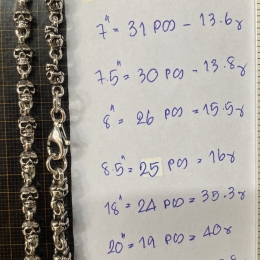 7" = 31 pcs - 13.6g
7.5" = 30 pcs - 13.8g
8" = 26 pcs = 15.5g
8.5" = 25 pcs = 16g
18" = 24 pcs = 35.3g
20" = 19 pcs = 40g